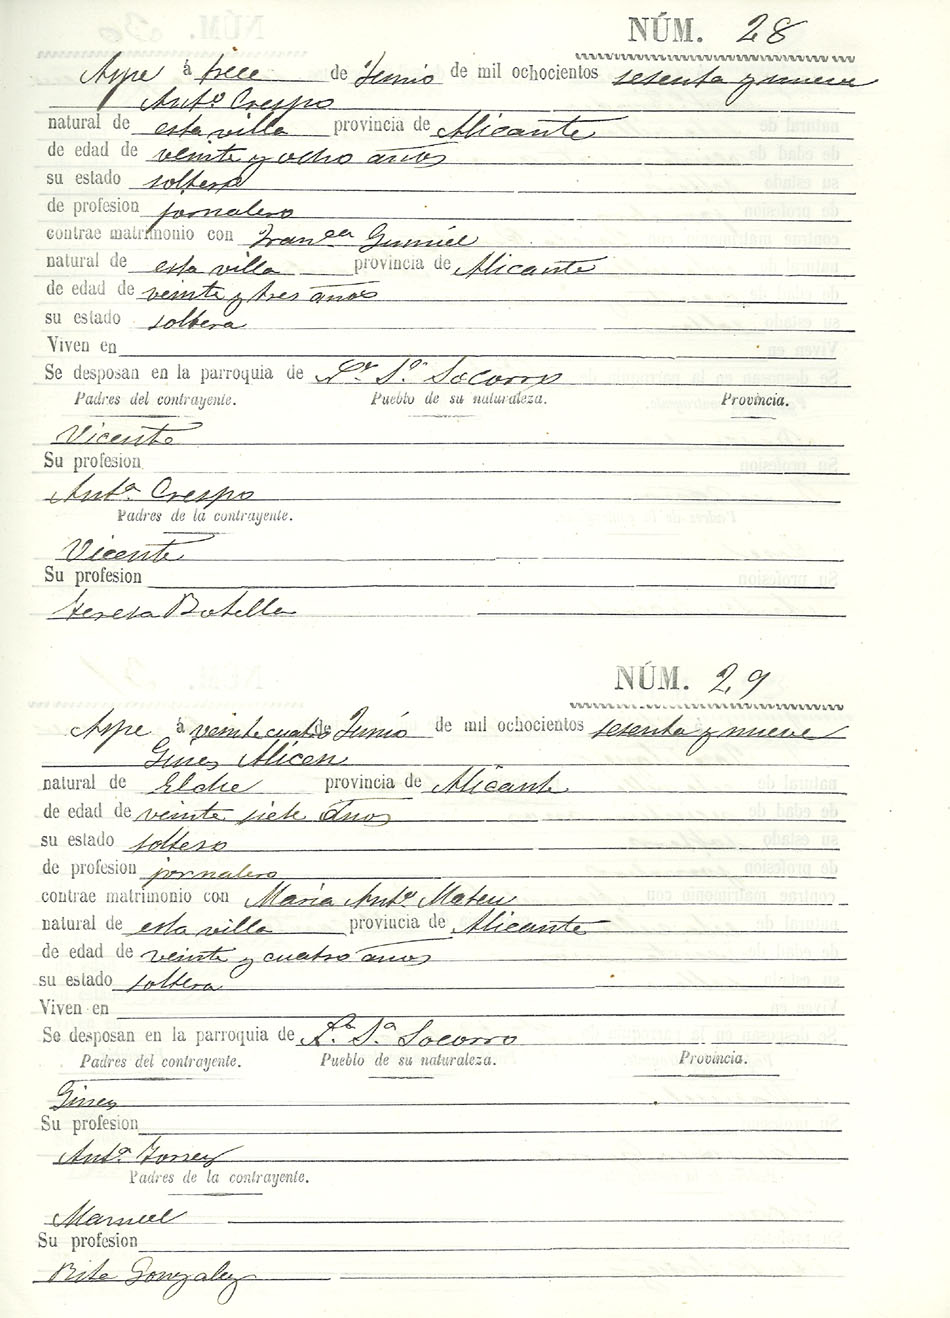 NÚM. 28
Aspe á trece de Junio de mil ochocientos sesenta y nueve
Antº Crespo
natural de esta villa provincia de Alicante
de edad de veinte y ocho años
su estado soltero
de profesion jornalero
contrae matrimonio con Franca Gumiel
natural de esta villa provincia de Alicante
de edad de veinte y tres años
su estado soltera
Viven en
Se desposan en la parroquia de Sª Socorro
Padres del contrayente. Pueblo de su naturaleza. Provincia.
Vicente
Su profesion
Antª Crespo
Padres de la contrayente.
Vicente
Su profesion
Teresa Botella
NÚM. 29
Aspe á veinte cuatro de Junio de mil ochocientos sesenta y nueve
Gines Alicen
natural de Elche provincia de Alicante
de edad de veinte siete años
su estado soltero
de profesion jornalero
contrae matrimonio con Maria Antª Mateu
natural de esta villa provincia de Alicante
de edad de veinte y cuatro años
su estado soltera
Viven en
Se desposan en la parroquia de Sª Socorro
Padres del contrayente. Pueblo de su naturaleza. Provincia.
Gines
Su profesion
Antª Torres
Padres de la contrayente.
Manuel
Su profesion
Rita Gonzalez